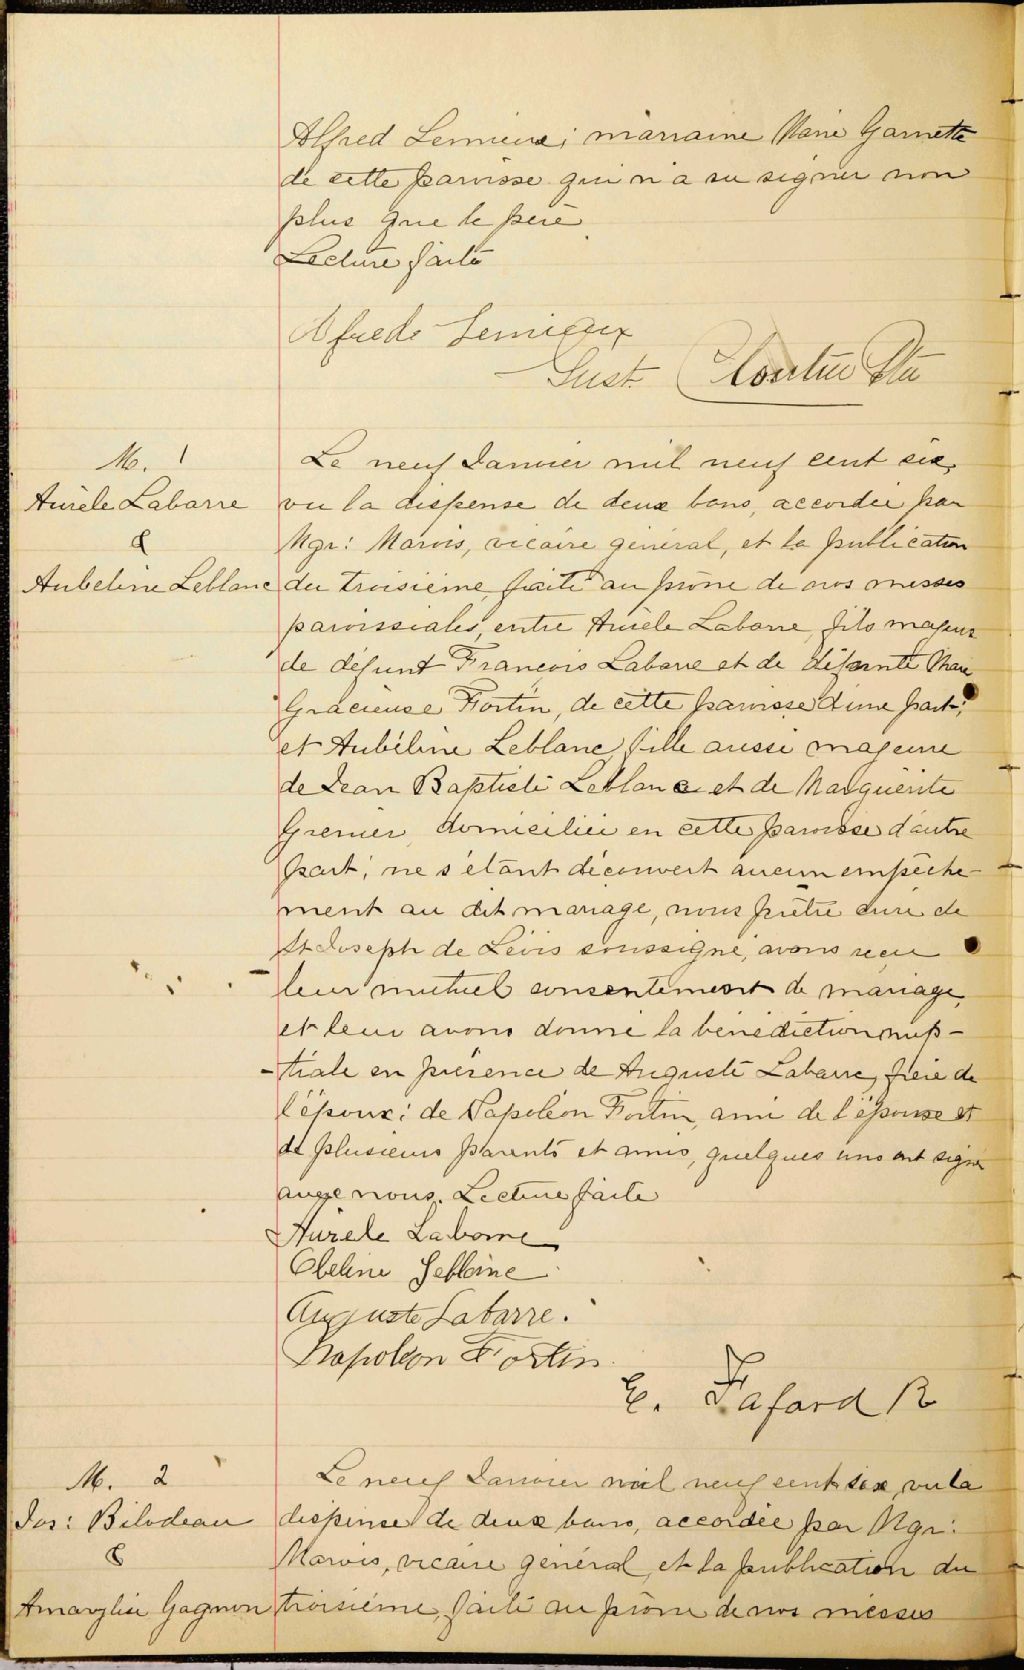 Alfred Lemieux; marraine Marie Garnette
de cette paroisse qui n'a su signer non
plus que le père.
Lecture faite
Alfrede Lemieux
Gust. Cloutier Ptre
M. 1
Aurèle Labarre
&
Aubeline Leblanc
Le neuf Janvier mil neuf cent six,
vu la dispense de deux bans, accordée par
Mgr: Marois, vicaire général, et la publication
du troisième, faite au prône de nos messes
paroissiales, entre Aurèle Labarre, fils majeur
de défunt François Labarre et de défunte Marie
Gracieuse Fortin, de cette paroisse d'une part;
et Aubéline Leblanc, fille aussi majeure
de Jean Baptiste Leblanc et de Marguerite
Grenier, domiciliée en cette paroisse d'autre
part; ne s'étant découvert aucun empêche-
ment au dit mariage, nous prêtre curé de
St Joseph de Lévis soussigné, avons reçu
leur mutuel consentement de mariage,
et leur avons donné la bénédiction nup-
-tiale en présence de Auguste Labarre, frère de
l'époux; de Napoléon Fortin, ami de l'épouse et
de plusieurs parents et amis, quelques uns ont signé
avec nous. Lecture faite
Aurele Labarre
Obeline Leblanc
Auguste Labarre.
Napoléon Fortin.
E. Fafard
M. 2
Jos: Bilodeau
&
Amaryllise Gagnon
Le neuf Janvier mil neuf cent six, vu la
dispense de deux bans, accordée par Mgr:
Marois, vicaire général, et la publication du
troisième, faite au prône de nos messes